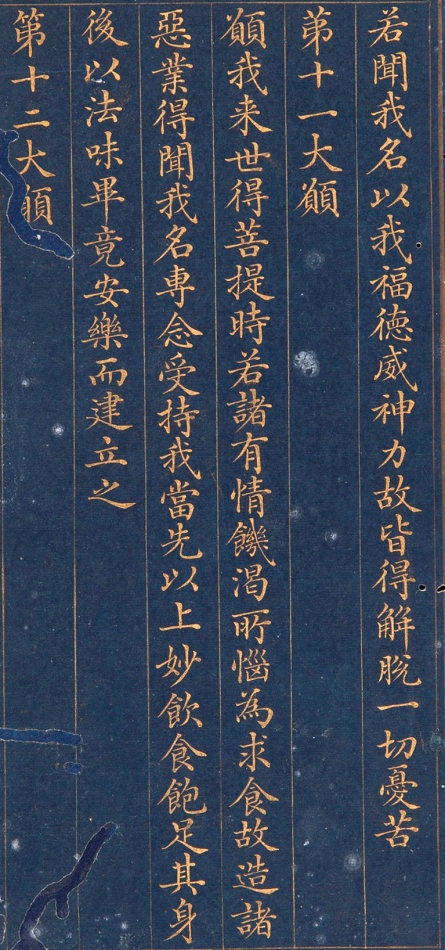 若聞我名以我福徳威神力故皆得解脫一切憂苦
第十一大願
願我来世得菩提時若諸有情饑渴所惱為求食故造諸
惡業得聞我名專念受持我當先以上妙飲食飽足其身
後以法味畢竟安樂而建立之
第十二大願